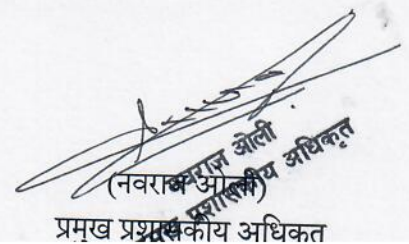 नवराज ओली
प्रमुख प्रशासकीय अधिकृत
(नवराज ओली)
प्रमुख प्रशासकीय अधिकृत